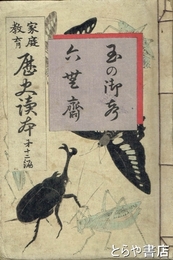 家庭
教育
歴史読本
第十二編
玉の御声
六無斎
とらや書店